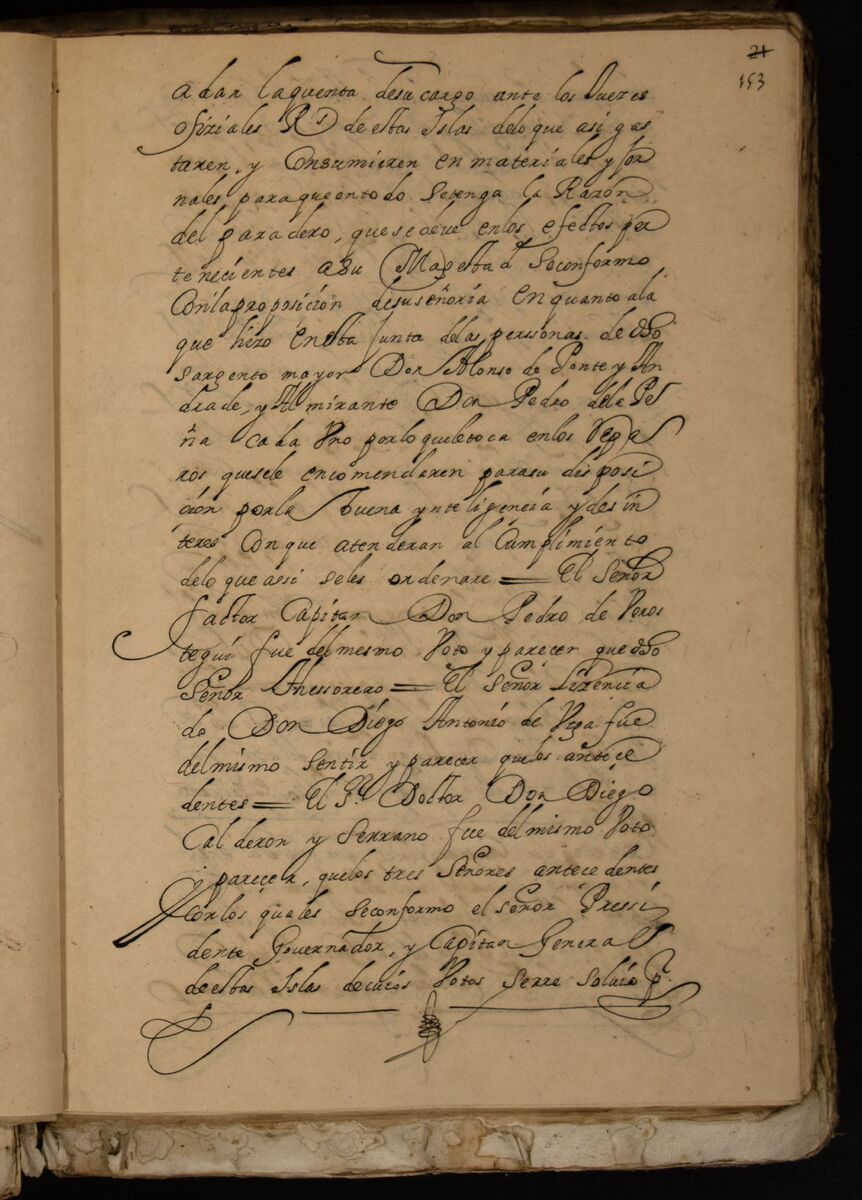 21
153
a dar la quenta de su cargo ante los Juezes
ofiziales Rs de estas Islas de lo que asi gas
taren, y Consumieren en materiales y jor
nales para que en todo se tenga la Razon
del paradero, que se deve en los efectos per
tenecientes a su Magestad se conformo
Con la proposición de su señoria en quanto a la
que hizo en esta Junta de las perssonas de dho
Sargento mayor Don Alonso de Ponte y An
drade, y Almirante Don Pedro de la Pe
ña cada Vno por lo que le toca en los
ros que se le encomendaren para su disposi
ción por la buena ynteligencia y desin
teres con que atenderan al Cumplimiento
de lo que assi se les ordenare = El Señor
factor Capitan Don Pedro de Veros
tegui fue del mesmo Voto y parecer que dho
Señor Thessorero = El Señor Lizencia
do Don Diego Antonio de Vega fue
del mismo sentir y parecer que los antece
dentes = El Sr. Doctor Don Diego
Calderon y Serrano fue del mismo Voto
y parecer, que los tres Señores antecedentes
con los quales se conformo el señor Pressi
dente Governador, y Capitan General
de estas Islas de cuios Votos se rresolvio p.